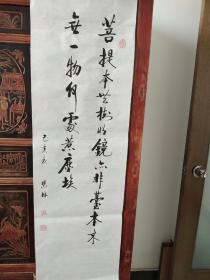 菩提本無樹明鏡亦非臺本来
無一物何處惹塵埃